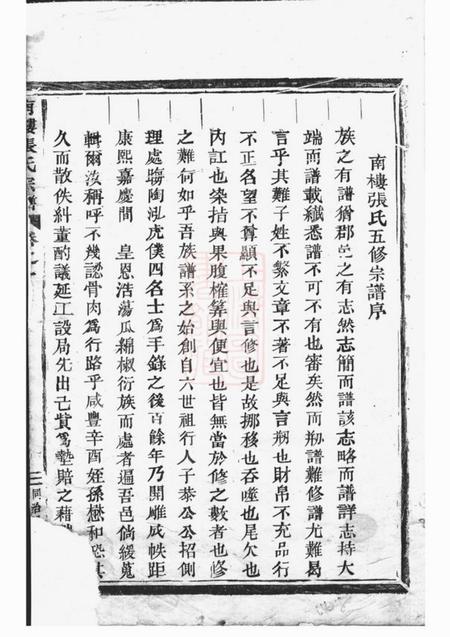 南樓張氏五修宗譜序
族之有譜猶郡邑之有志然志簡而譜該志略而譜詳志持大
端而譜載纖悉譜不可不有也審矣然而刱譜難修譜尤難曷
言乎其難子姓不繁文章不著不足與言刱也財帛不充品行
不正名望不尊顯不足與言修也是故挪移也吞噬也尾欠也
內訌也染指與果腹榷算與便宜也皆無當於修之數者也修
之難何如乎吾族譜系之始創自六世祖行人子泰公公招側
理處臨陶泓虎僕四名士為手錄之後百餘年乃開雕成帙距
康熙嘉慶間 皇恩浩蕩瓜綿椒衍族而處者遍吾邑倘緩蒐
輯爾汝稱呼不幾認骨肉為行路乎咸豐辛酉姪孫懋和恐其
久而散佚糾董酌議延工設局先出己貲為墊賠之藉
南樓張氏宗譜 卷之一
同治